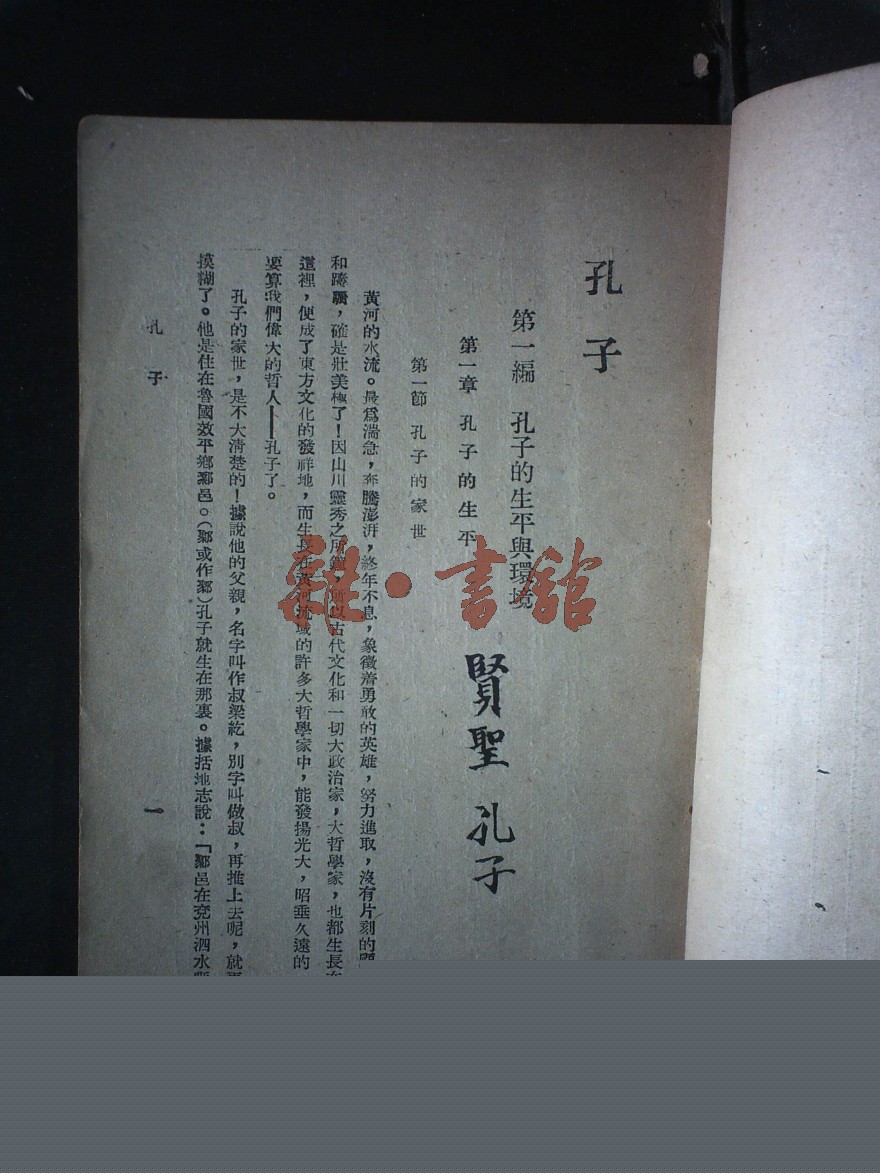 孔子
第一編　孔子的生平與環境
第一章　孔子的生平
賢聖　孔子
第一節　孔子的家世
黃河的水流。最爲湍急，奔騰澎湃，終年不息，象徵着勇敢的英雄，努力進取，沒有片刻的
和躊躇，確是壯美極了！因山川靈秀之所鍾，所以古代文化和一切大政治家，大哲學家，也都生長在
這裡，便成了東方文化的發祥地，而生長在黃河流域的許多大哲學家中，能發揚光大，昭垂久遠的
要算我們偉大的哲人——孔子了。
孔子的家世，是不大淸楚的！據說他的父親，名字叫作叔梁紇，別字叫做叔，再推上去呢，就更
摸糊了。他是住在魯國效平鄉鄹邑。（鄹或作鄒）孔子就生在那裏。據括地志說：「鄹邑在兗州泗水縣
孔子
一
雜·書館